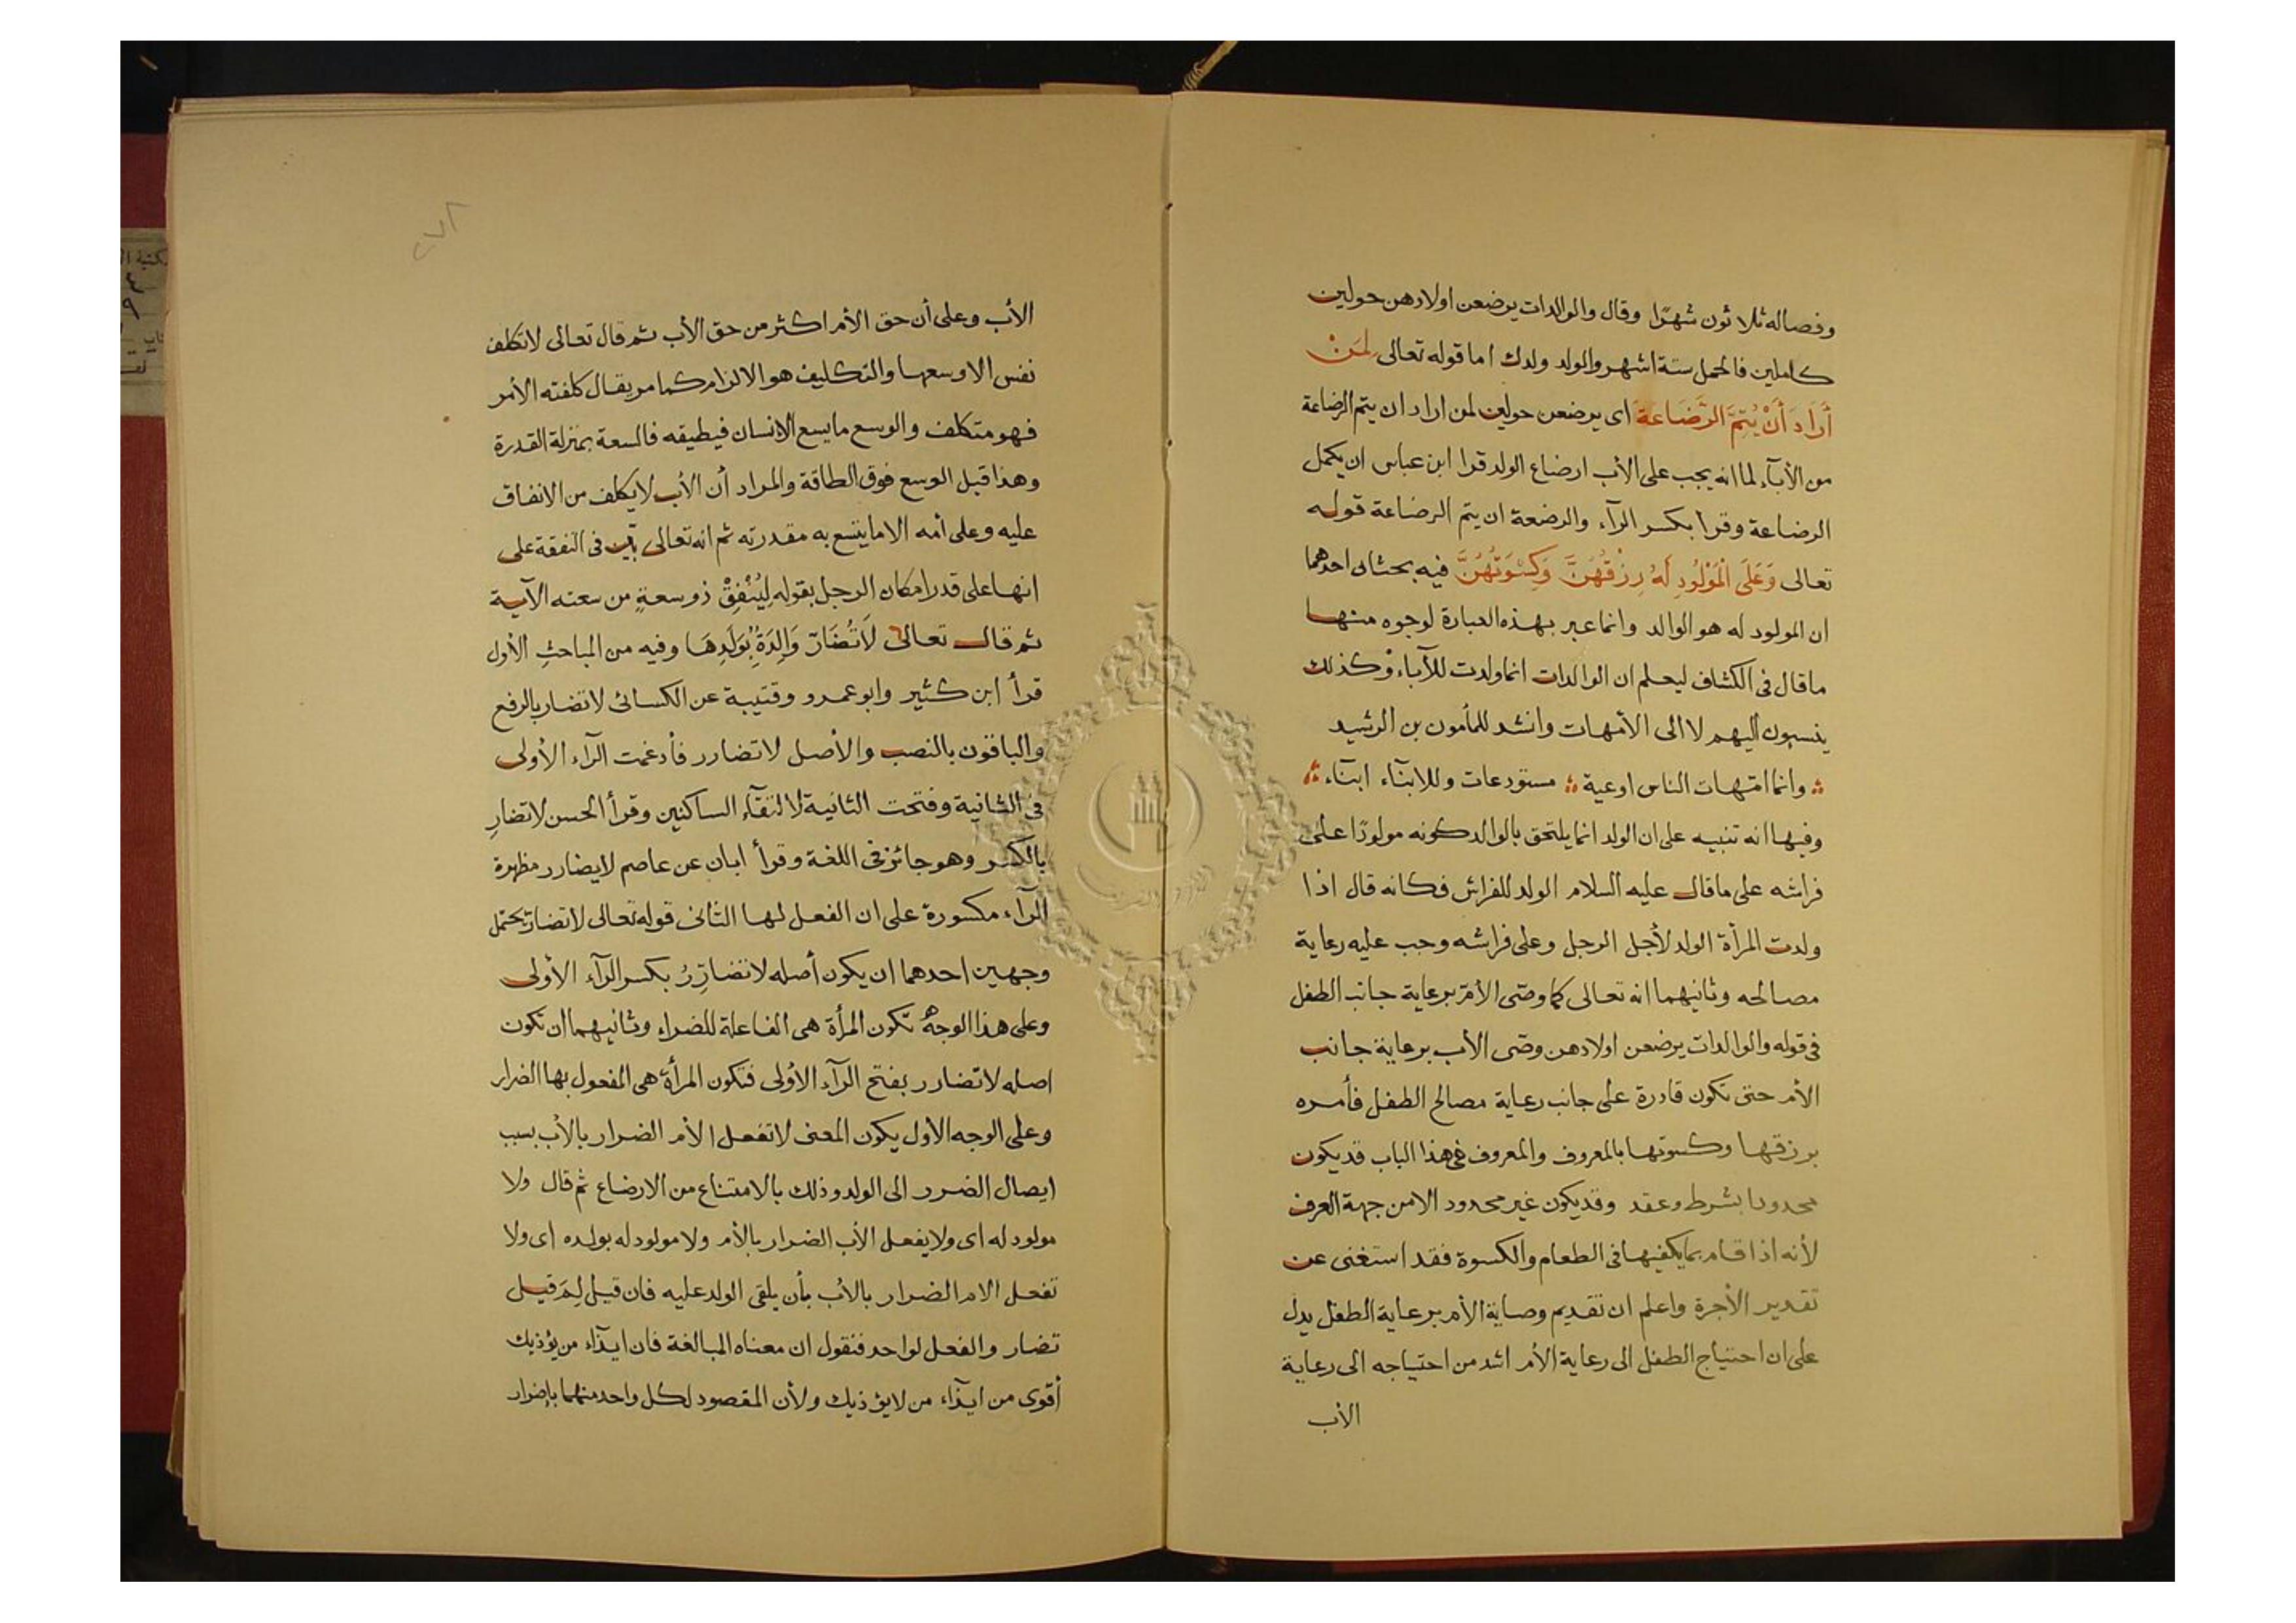 وفصاله ثلاثون شهرًا وقال والوالدات يرضعن اولادهن حولين
كاملين فالحمل ستة اشهر والولد ولدك اما قوله تعالى لِمَنْ
أَرَادَ أَنْ يُتِمَّ الرَّضَاعَةَ اى يرضعن حولين لمن اراد ان يتم الرضاعة
من الأبآء لما انه يجب على الأب ارضاع الولد قرا ابن عباس ان يكمل
الرضاعة وقرا بكسر الرآء والرضعة ان يتم الرضاعة قوله
تعالى وَعَلَى الْمَوْلُودِ لَهُ رِزْقُهُنَّ وَكِسْوَتُهُنَّ فيه بحثان احدهما
ان المولود له هو الوالد وانما عبر بهذه العبارة لوجوه منها
ما قال فى الكشاف ليعلم ان الوالدات انما ولدت للآباء وكذلك
ينسبون أليهم لا الى الأمهات وانشد للمأمون بن الرشيد
وانما امّهات الناس اوعية مستودعات وللابنآء ابنآء
وفيها انه تنبيه على ان الولد انما يلتحق بالوالد كونه مولودًا على
فراشه على ما قال عليه السلام الولد للفراش فكانه قال اذا
ولدت المرأة الولد لأجل الرجل وعلى فراشه وجب عليه رعاية
مصالحه وثانيهما انه تعالى كما وصّى الأمّ برعاية جانب الطفل
فى قوله والوالدات يرضعن اولادهن وصّى الأب برعاية جانب
الأم حتى تكون قادرة على جانب رعاية مصالح الطفل فأمره
برزقها وكسوتها بالمعروف والمعروف فى هذا الباب قد يكون
محدودا بشرط وعقد وقد يكون غير محدود الا من جهة العرف
لأنه اذا قام بما يكفيها فى الطعام والكسوة فقد استغنى عن
تقدير الأجرة واعلم ان تقديم وصاية الأم برعاية الطفل يدل
على ان احتياج الطفل الى رعاية الأم اشد من احتياجه الى رعاية
الأب
٢٧٨
الأب وعلى أن حق الأم اكثر من حق الأب ثم قال تعالى لا تكلف
نفس الا وسعها والتكليف هو الالزام كما مر يقال كلفته الأمر
فهو متكلف والوسع ما يسع الانسان فيطيقه فالسعة بمنزلة القدرة
وهذا قيل الوسع فوق الطاقة والمراد أن الأب لا يكلف من الانفاق
عليه وعلى أمه الا ما يتسع به مقدرته ثم انه تعالى بيّن فى النفقة على
انها على قدر امكان الرجل بقوله لِيُنْفِقْ ذو سعةٍ من سعته الآية
ثم قال تعالى لَا تُضَارّ وَالِدَةٌ بِوَلَدِهَا وفيه من المباحث الأول
قرأ ابن كثير وابو عمرو وقتيبة عن الكسائى لا تضار بالرفع
والباقون بالنصب والأصل لا تضارر فأدغمت الرآء الأولى
فى الثانية وفتحت الثانية لالتقآء الساكنين وقرأ الحسن لا تضارِ
بالكسر وهو جائز فى اللغة وقرأ ابان عن عاصم لا يضارر مظهرة
الرآء مكسورة على ان الفعل لها الثانى قوله تعالى لا تضار يحتمل
وجهين احدهما ان يكون أصله لا تضارِرُ بكسر الرآء الأولى
وعلى هذا الوجه تكون المرأة هى الفاعلة للضراء وثانيهما ان تكون
اصله لا تضارر بفتح الرآء الأولى فتكون المرأة هى المفعول بها الضرار
وعلى الوجه الاول يكون المعنى لا تفعل الأم الضرار بالأب بسبب
ايصال الضرر الى الولد وذلك بالامتناع من الارضاع ثم قال ولا
مولود له اى ولا يفعل الأب الضرار بالأم ولا مولود له بولده اى ولا
تفعل الام الضرار بالأب بأن يلقى الولد عليه فان قيل لِمَ قيل
تضار والفعل لواحد فنقول ان معناه المبالغة فان ايذآء من يؤذيك
أقوى من ايذآء من لا يؤذيك ولأن المقصود لكل واحد منهما بإضرار